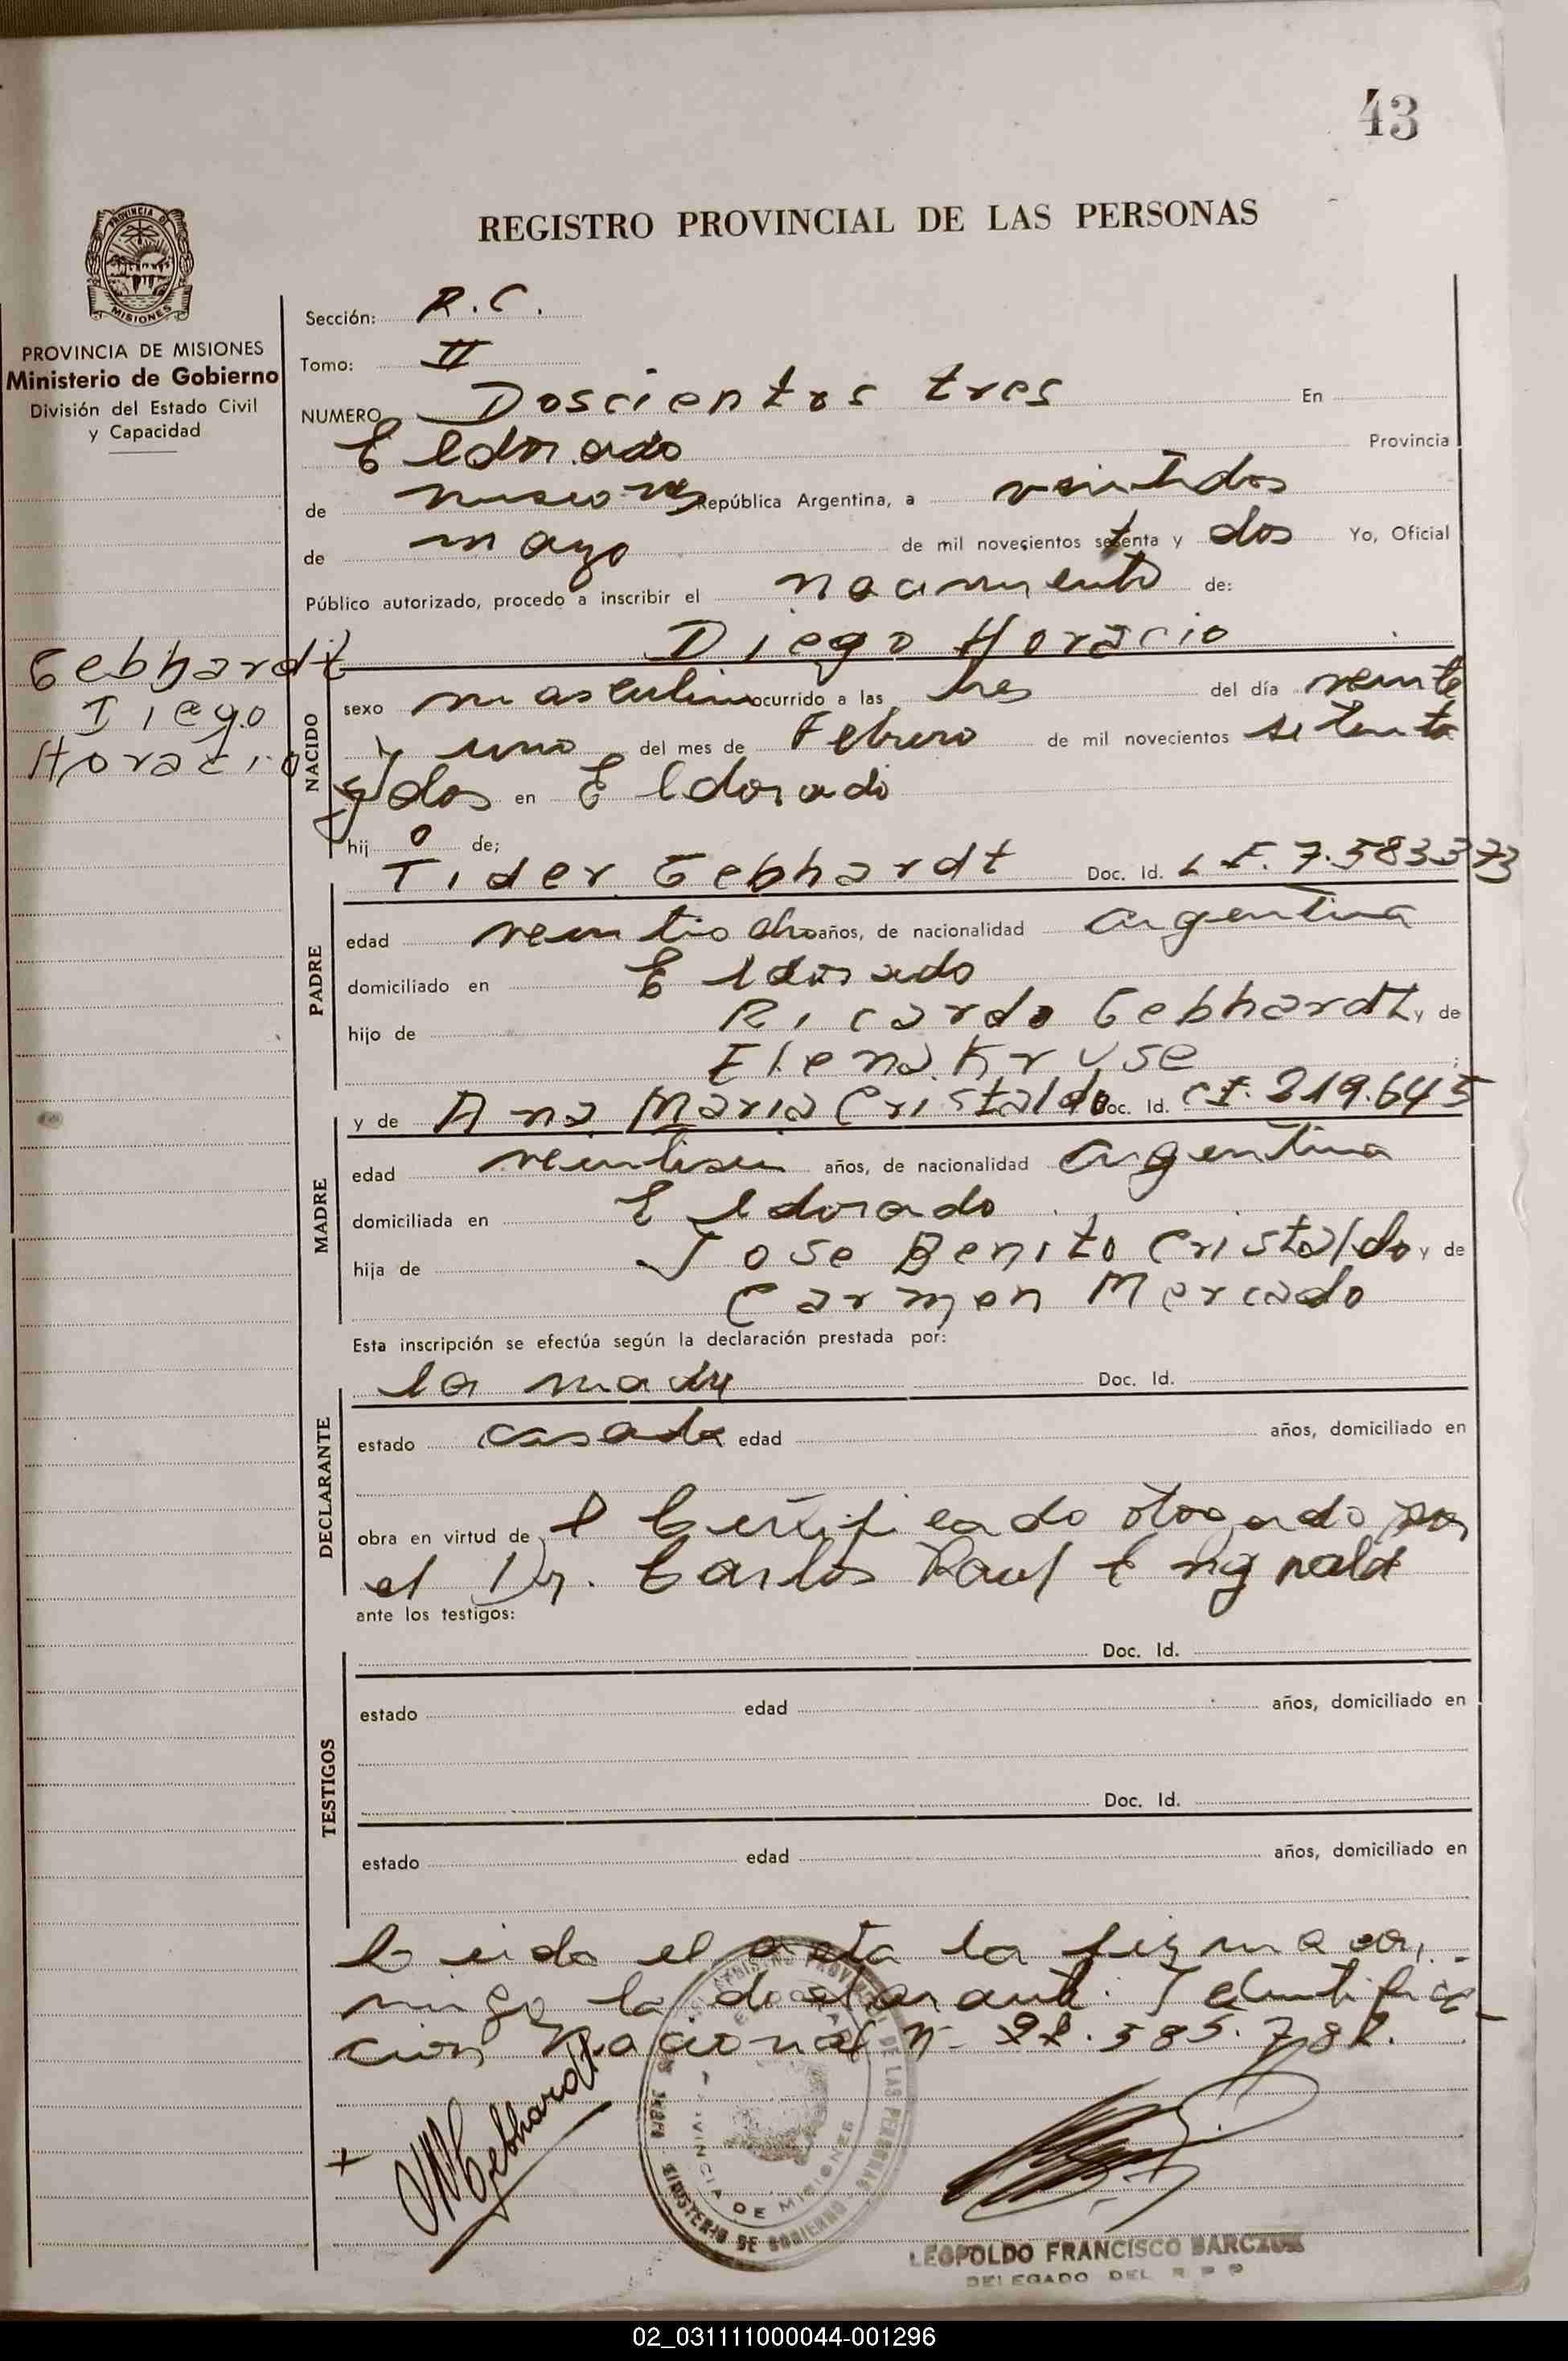 43
REGISTRO PROVINCIAL DE LAS PERSONAS
PROVINCIA DE MISIONES
Ministerio de Gobierno
División del Estado Civil
y Capacidad
Sección: R.C.
Tomo: II
NUMERO Doscientos tres En
Eldorado Provincia
de Misiones República Argentina, a veintidos
de mayo de mil novecientos setenta y dos Yo, Oficial
Público autorizado, procedo a inscribir el nacimiento de:
Diego Horacio
Gebhardt
Diego
Horacio
NACIDO
sexo masculino ocurrido a las tres del día veinte
y uno del mes de Febrero de mil novecientos setenta
y dos en Eldorado
hij o de;
Tider Gebhardt Doc. Id. L E. 7.583373
PADRE
edad veintiocho años, de nacionalidad argentina
domiciliado en Eldorado
hijo de Ricardo Gebhardt y de
Elena Kruse
y de Ana Maria Cristaldo Doc. Id. CI. 219.645
MADRE
edad veintiseis años, de nacionalidad argentina
domiciliada en Eldorado
hija de Jose Benito Cristaldo y de
Carmen Mercado
Esta inscripción se efectúa según la declaración prestada por:
la madre Doc. Id.
DECLARANTE
estado casada edad años, domiciliado en
obra en virtud del Certificado otorgado por
el Dr. Carlos Raul
ante los testigos:
Doc. Id.
TESTIGOS
estado edad años, domiciliado en
Doc. Id.
estado edad años, domiciliado en
Leida el acta la firma con
migo la declarante. Identifica
cion Nacional n- 22.585.782.
Gebhardt
PROVINCIA DE MISIONES
MINISTERIO DE GOBIERNO
LEOPOLDO FRANCISCO BARCZUK
DELEGADO DEL R P P
02_031111000044-001296